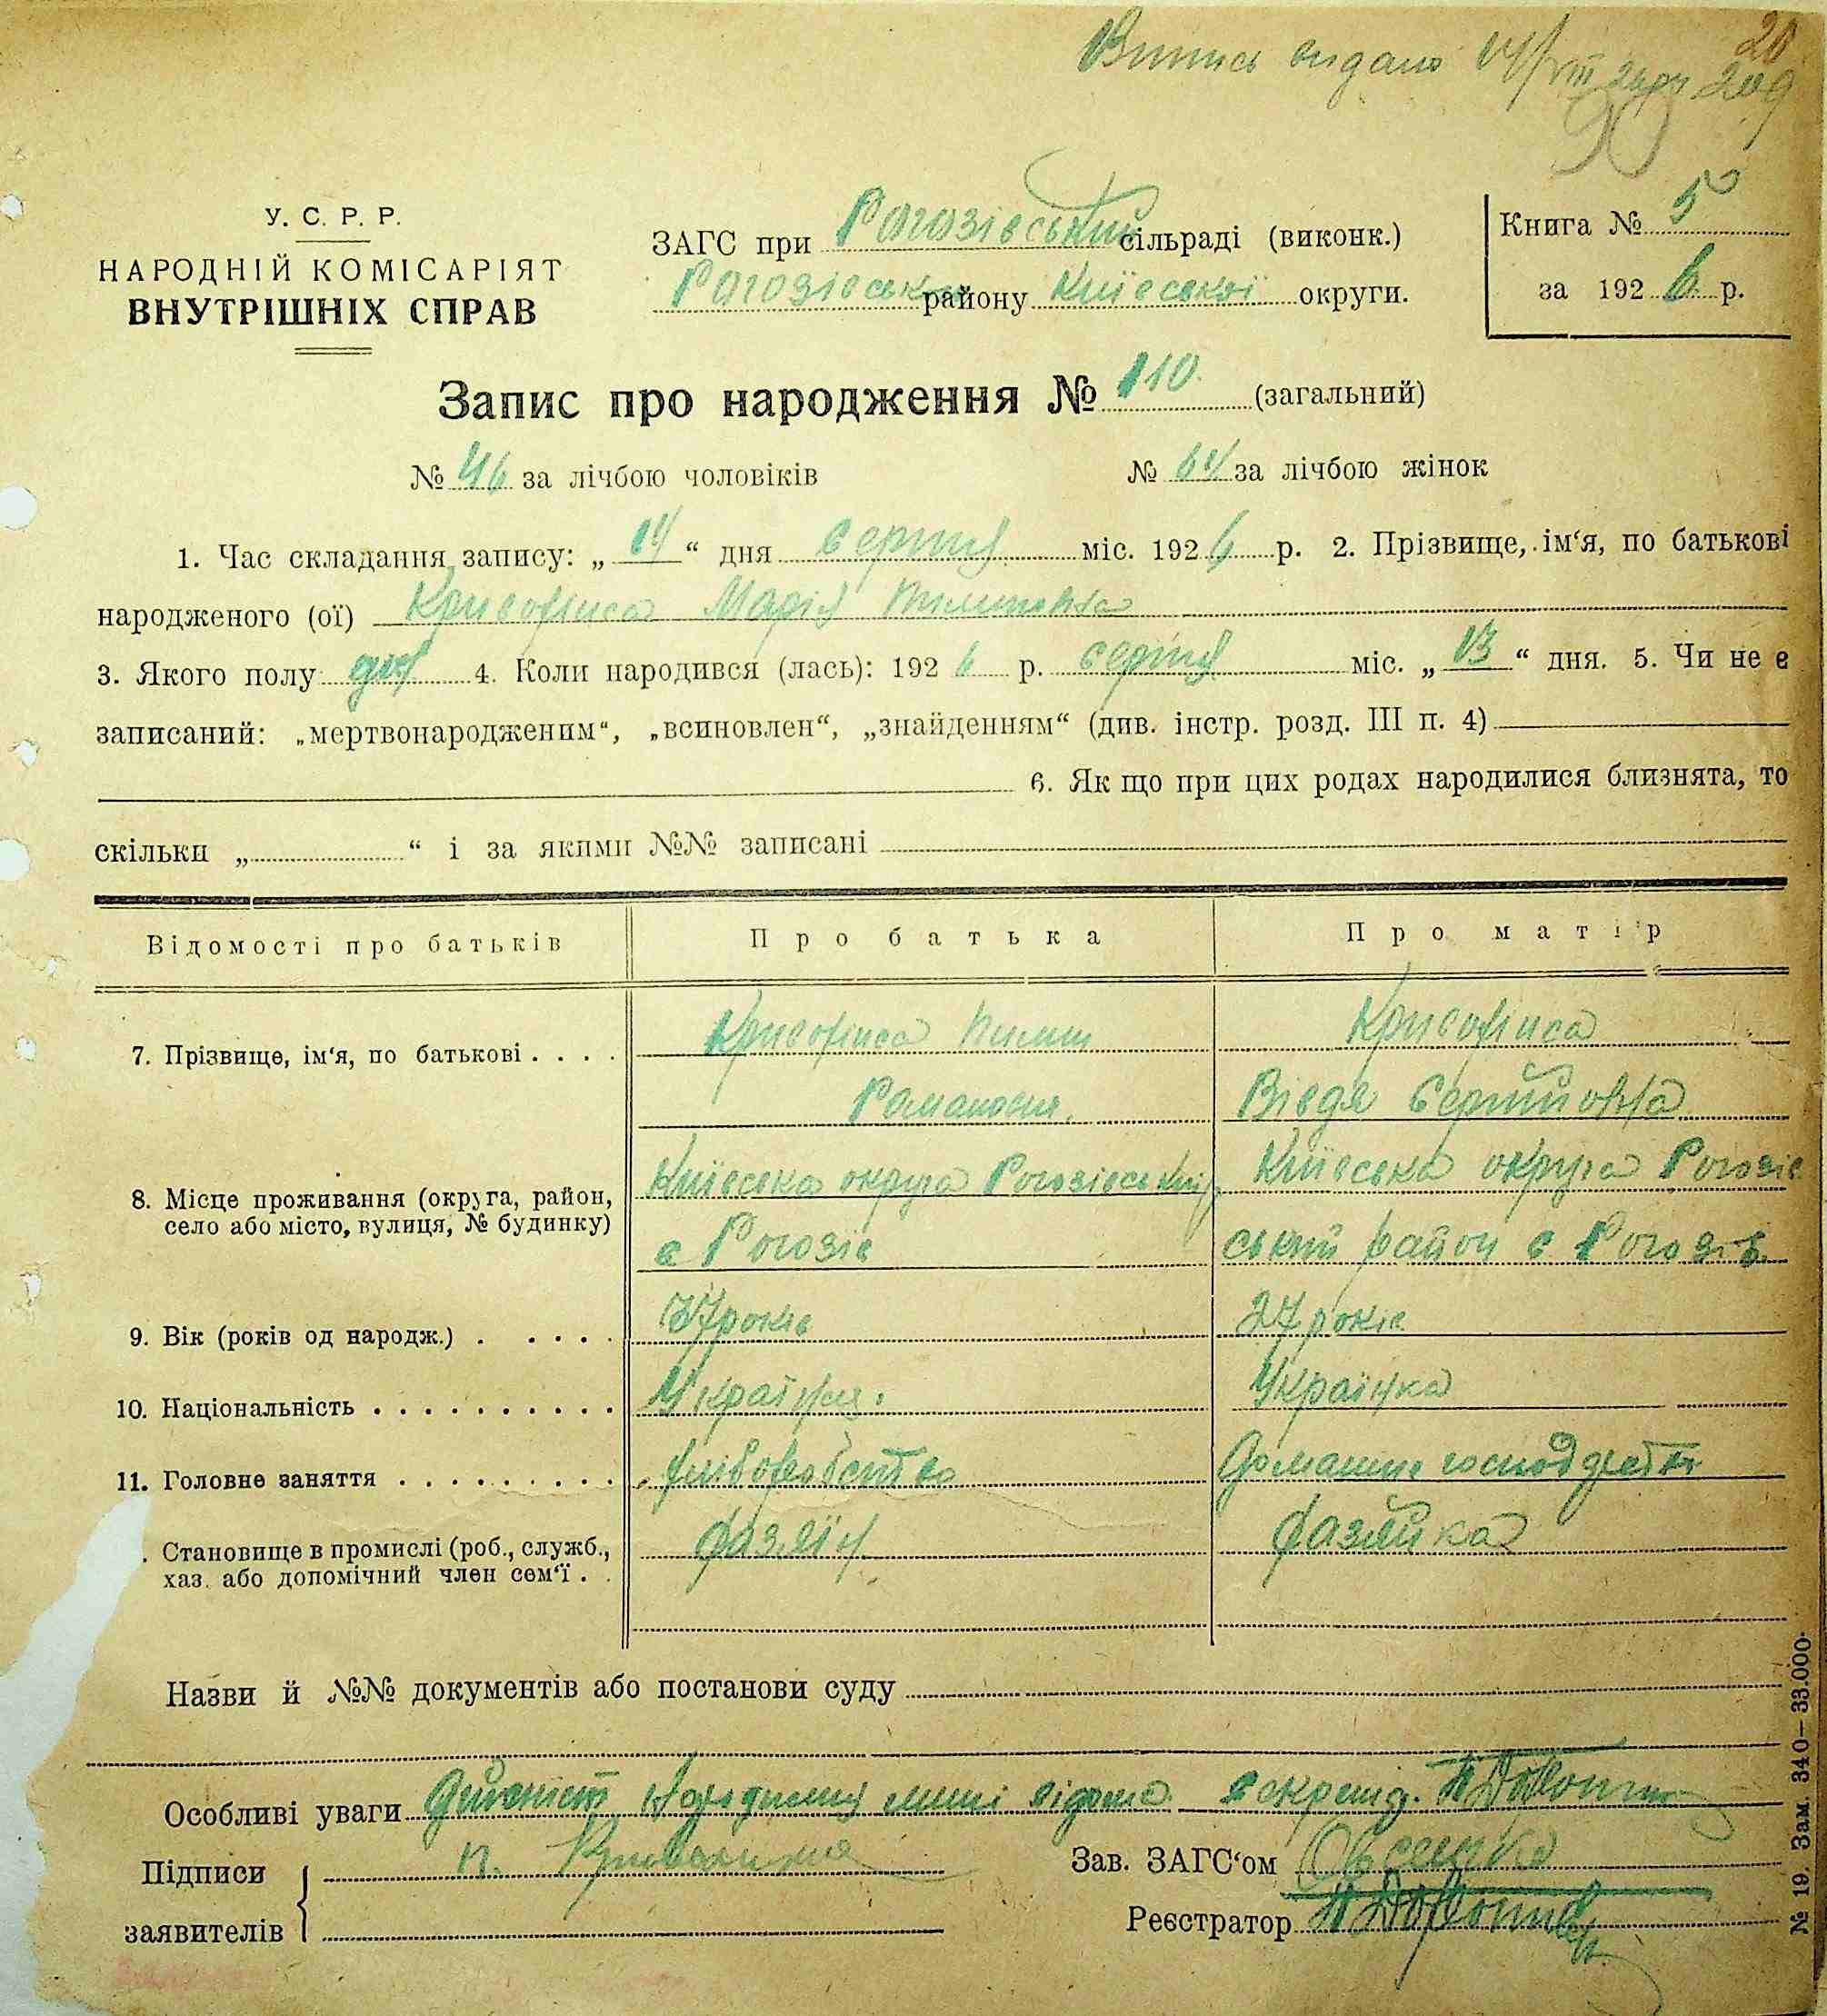 Витись видано 14/VIII
20
90
У. С. Р. Р.
НАРОДНІЙ КОМІСАРІЯТ
ВНУТРІШНІХ СПРАВ
ЗАГС при Рогозівський сільраді (виконк.)
Рогозівськ району Київської округи.
Книга № 5
за 192 6 р.
Запис про народження № 110 (загальний)
№ 46 за лічбою чоловіків № 64 за лічбою жінок
1. Час складання запису: „ 14 “ дня серпня міс. 192 6 р. 2. Прізвище, ім‘я, по батькові
народженого (ої) Кривохиса Марія Пилиповна
3. Якого полу 4. Коли народився (лась): 192 6 р. серпня міс. „ 13 “ дня. 5. Чи не є
записаний: „мертвонародженим“, „всиновлен“, „знайденням“ (див. інстр. розд. III п. 4)
6. Як що при цих родах народилися близнята, то
скільки „ “ і за якими №№ записані
Відомості про батьків Про батька Про матір
7. Прізвище, ім‘я, по батькові . . . . Кривохиса Пилип Кривохиса
Романович. Вівдя Сергійовна
8. Місце проживання (округа, район, Київська округа Рогозівський Київська округа Рогозів
село або місто, вулиця, № будинку) с Рогозів ський район с Рогозів.
9. Вік (років од народж.) . . . . . 37 років 27 років
10. Національність . . . . . . . . . . Українец. Українка
11. Головне заняття . . . . . . . . . хліборобство Домашне господарство
. Становище в промислі (роб., служб., хазяїн. хазяйка
хаз. або допомічний член сем‘ї . .
Назви й №№ документів або постанови суду
Особливі уваги Дійсність народження мині відома секретар.
Підписи
заявителів
П.
Зав. ЗАГС‘ом Овсенко
Реєстратор
№ 19. Зам. 340—33.000.